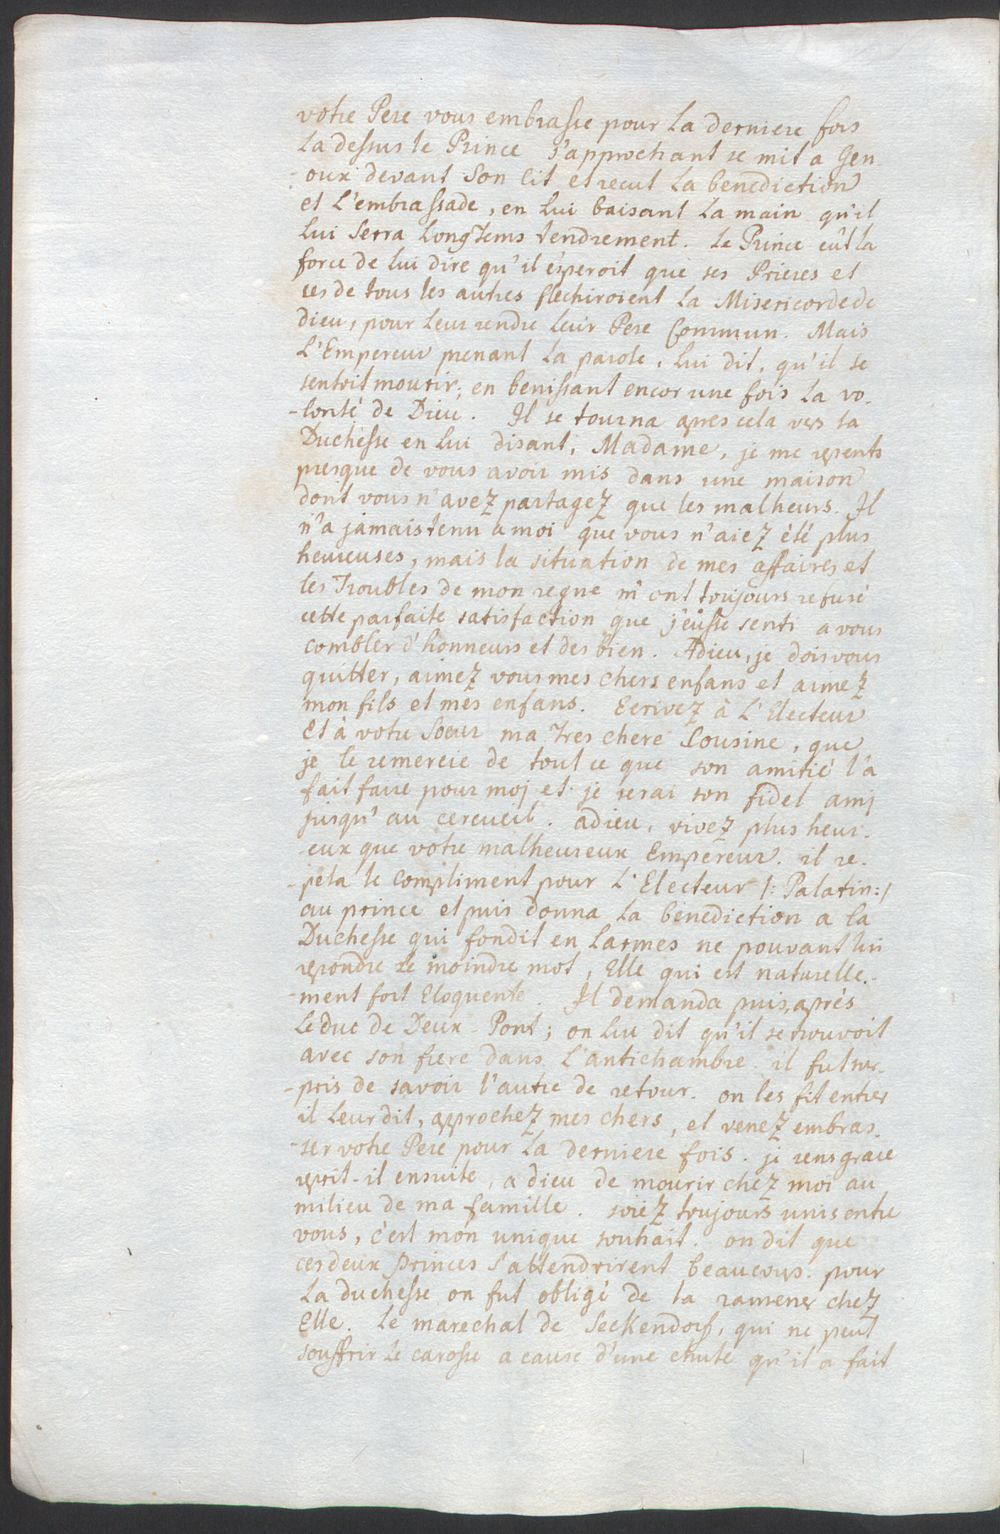 votre Pere vous embrasse pour La derniere fois
La dessus le Prince s'approchant se mit a Gen
-oux devant Son Lit et recut La benediction
et L'embrassade, en Lui baisant La main qu'il
Lui Serra LongTems tendrement. Le Prince eût la
force de lui dire qu'il ésperoit que ses Prieres et
ces de tous les autres flechiroient La Misericorde de
Dieu, pour Leur rendre leur Pere Commun. Mais
L'Empereur prenant La parole, lui dit, qu'il se
sentoit mourir; en benissant encor une fois La vo-
-lonté de Dieu. Il se tourna apres cela vers la
Duchesse en Lui disant, Madame, je me repents
presque de vous avoir mis dans une maison
dont vous n'avez partagez que les malheurs. Il
n'a jamais tenu a moi que vous n'aiez été plus
heureuses, mais la situation de mes affaires et
les Troubles de mon regne m'ont toujours refusé
cette parfaite satisfaction que j'eusse senti a vous
combler d'honneurs et des bien. Adieu, je dois vous
quitter, aimez vous mes chers enfans et aimez
mon fils et mes enfans. Ecrivez à L'Electeur
Et à votre Soeur ma Tres chere Cousine, que
je le remercie de tout ce que son amitié l'a
fait faire pour moj et je serai son fidel amj
jusqu'au cercueil. adieu, vivez plus heur-
eux que votre malheureux Empereur. il re-
-peta le compliment pour L'Electeur /: Palatin:/
au prince et puis donna La bénediction a la
Duchesse qui fondit en Larmes ne pouvant lui
repondre le moindre mot, Elle qui est naturelle-
-ment fort Eloquente. Il demanda puis, aprés
Le Duc de Deux-Pont; on Lui dit qu'il se trouvoit
avec son frere dans L'antichambre. il fut sur-
-pris de savoir l'autre de retour. on les fit entrer
il Leur dit, approchez mes chers, et venez embras-
-ser votre Pere pour La derniere fois. je rens grace
reprit-il ensuite, a dieu de mourir chez moi au
milieu de ma famille. soiéz toujours unis entre
vous, c'est mon unique souhait. on dit que
ces deux Princes s'attendrirent beaucoup. pour
La duchesse on fut obligé de la ramener chez
Elle. Le marechal de Seckendorf, qui ne peut
souffrir Le carosse a cause d'une chute qu'il a fait